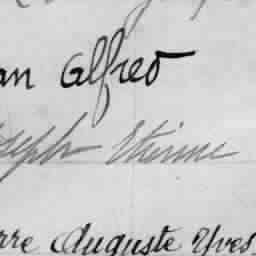 an Alfred
seph Etienne
rre Auguste Yves